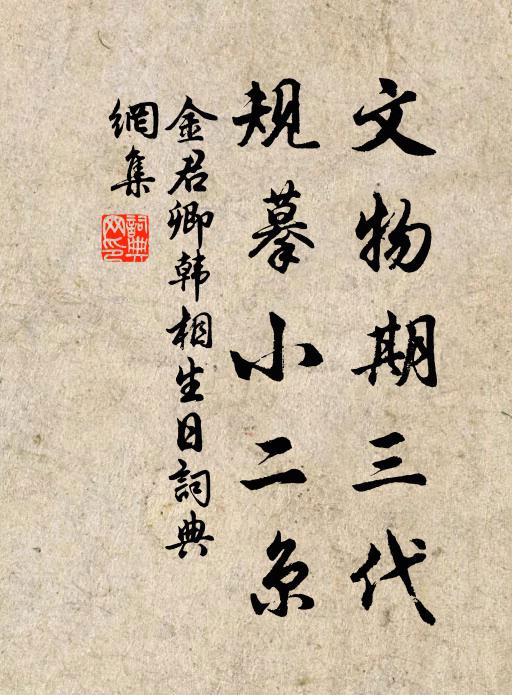 文物期三代
規摹小二京
金君卿韩相生日詞典
網集
詞典網印